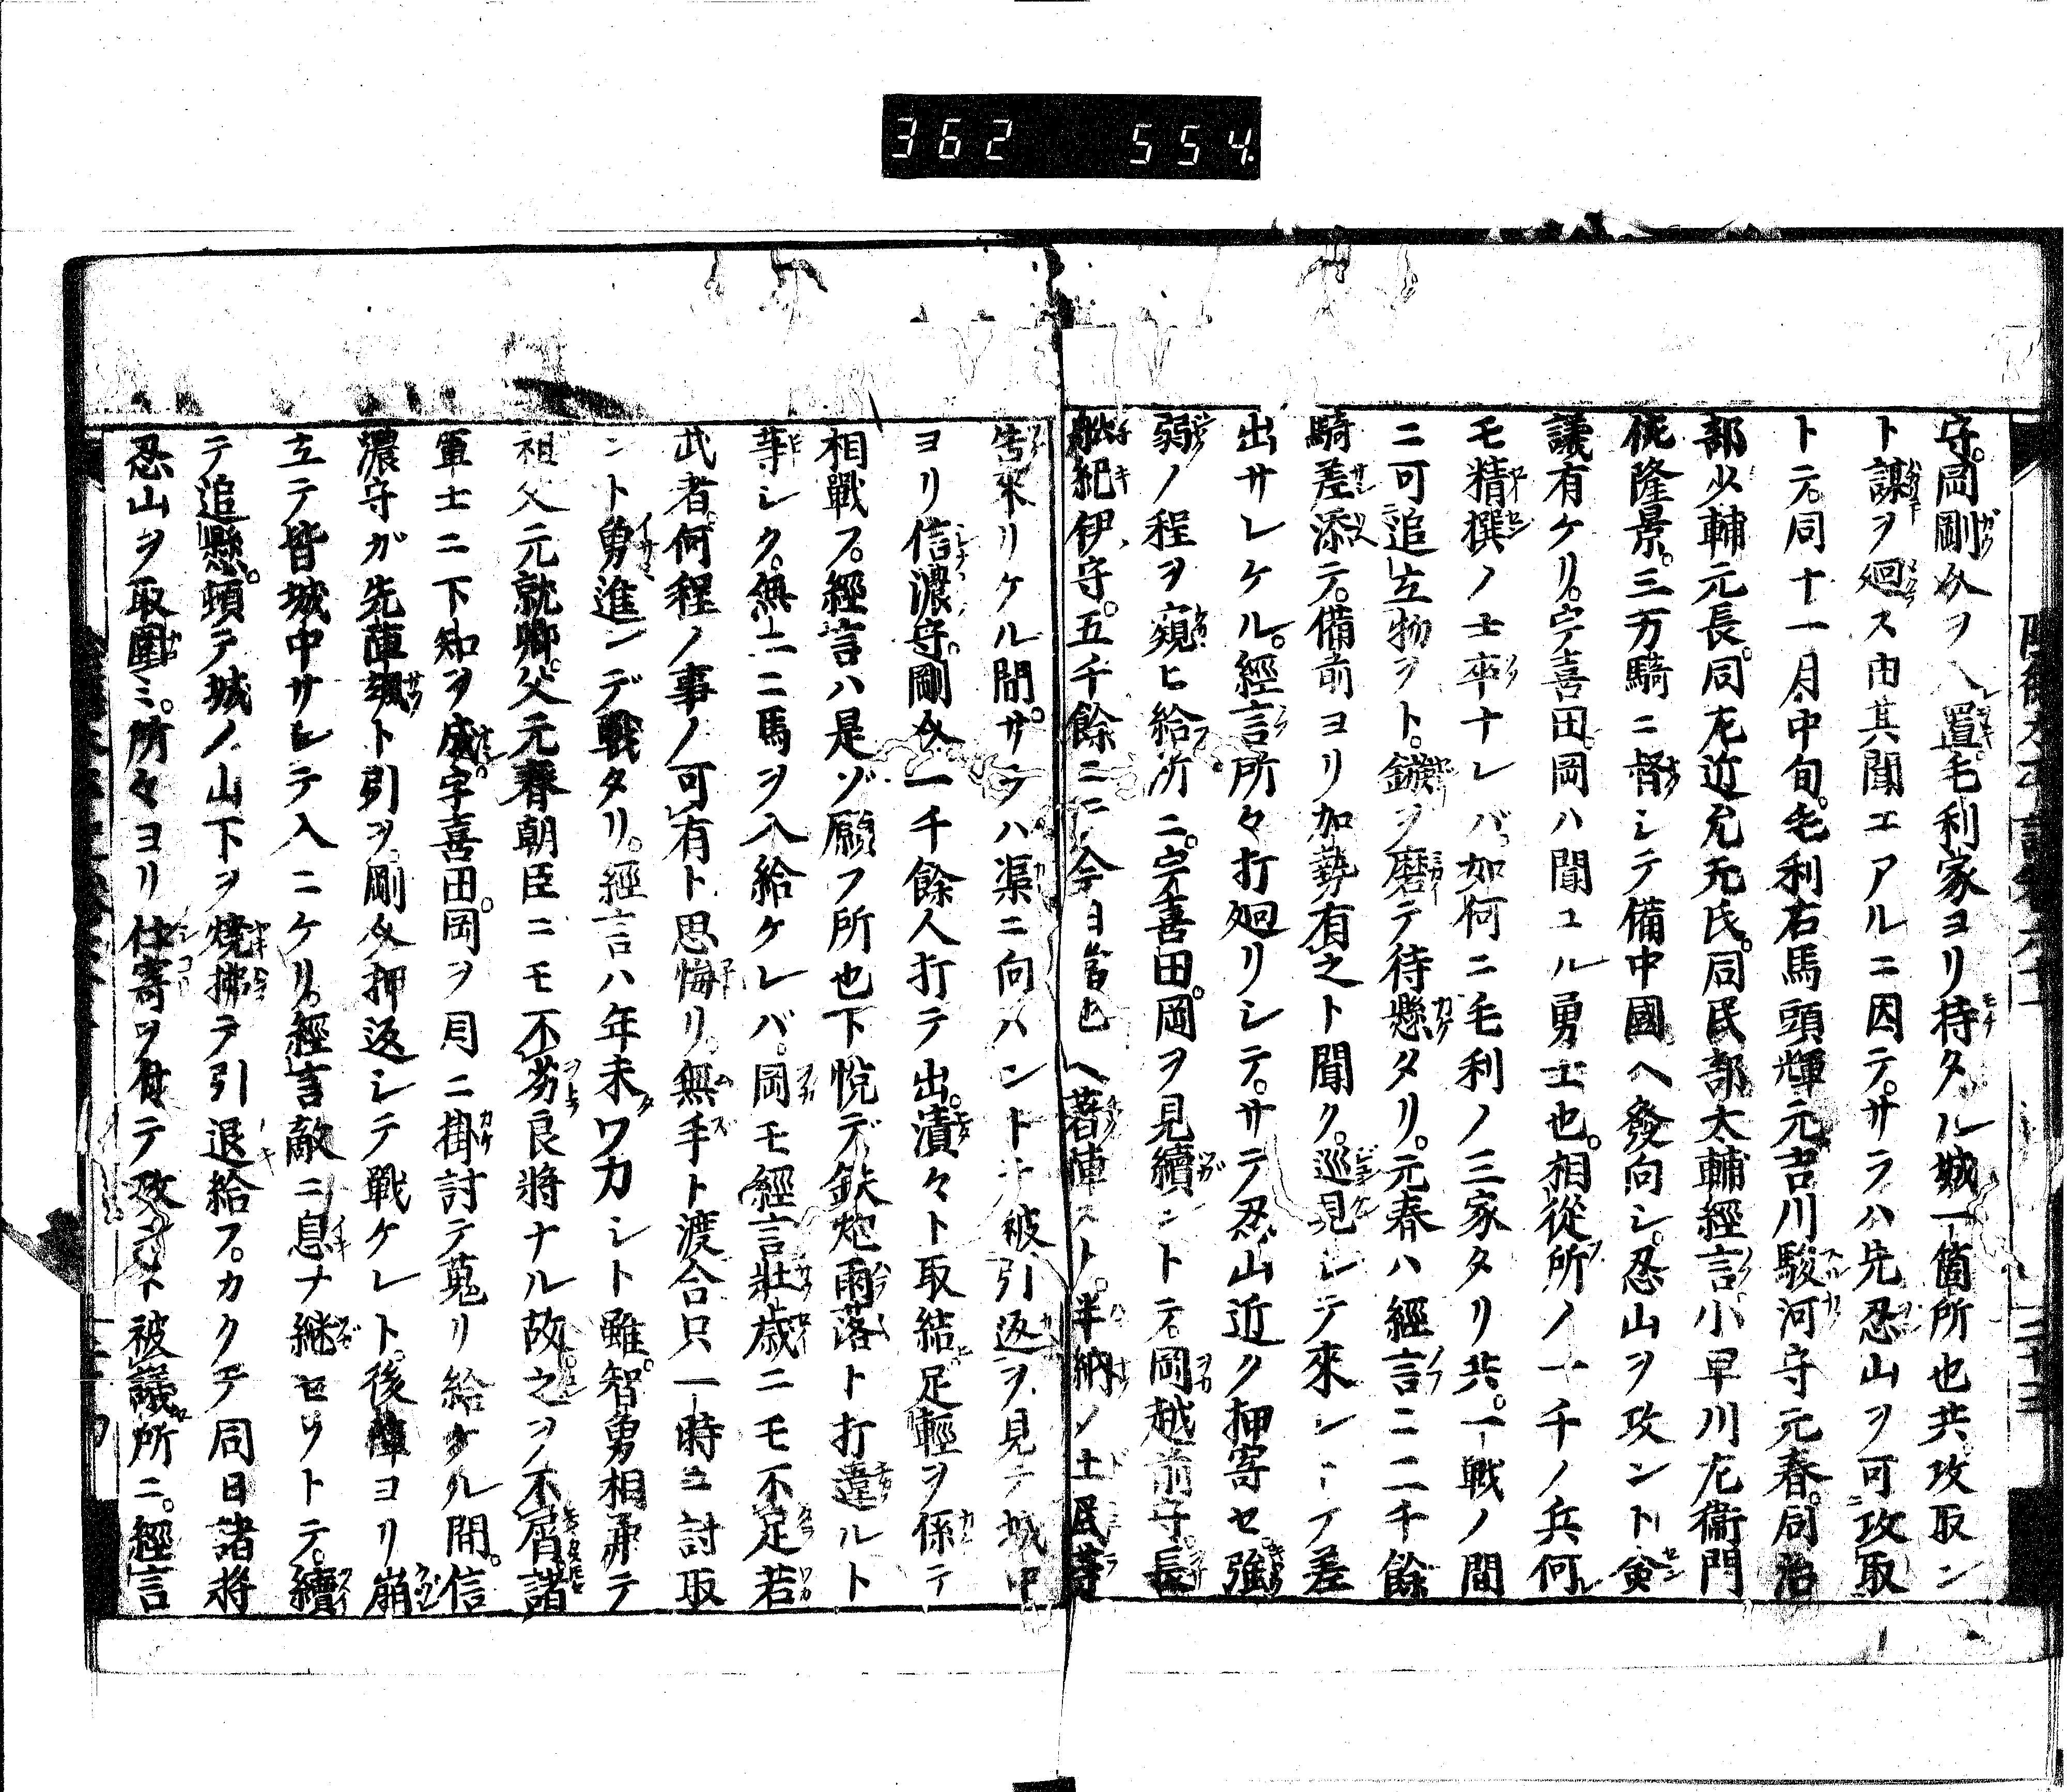 362 554.
守。岡剛 ヲ入置。毛利家ヨリ持タル城一箇所也共攻取ン
ト謀ヲ廻ス由其聞エアルニ因テ。サラハ先忍山ヲ可攻取
トテ。同十一月中旬。毛利右馬頭輝元吉川駿河守元春。同治
部少輔元長。同左近允元氏。同民部大輔經言。小早川左衞門
佐隆景。三万騎ニ督シテ備中國ヘ發向シ。忍山ヲ攻ント僉
議有ケリ。宇喜田。岡ハ聞ユル勇士也。相從所ノ一千ノ兵何
モ精撰ノ士卒ナレバ。如何ニ毛利ノ三家タリ共。一戰ノ間
ニ可追立物ヲト。鏃ヲ磨テ待懸タリ。元春ハ經言ニ二千餘
騎差添テ。備前ヨリ加勢有之ト聞ク。巡見シテ來レトテ差
出サレケル。經言所々打廻リシテ。サテ忍山近ク押寄セ。強
弱ノ程ヲ窺ヒ給所ニ。宇喜田。岡ヲ見續ントテ。岡越前守。長
舩紀伊守。五千餘ニテ今日 ヘ著陣スト。半納ノ土民等
告來リケル間。サラハ渠ニ向ハントテ被引返ヲ見テ城中
ヨリ信濃守。剛 一千餘人打テ出。漬々ト取結足輕ヲ係テ
相戰フ。經言ハ是ゾ願フ所也下悅デ鉄炮雨落ト打違ルト
等シク。無二ニ馬ヲ入給ケレバ。岡モ經言壯歳ニモ不足若
武者。何程ノ事ノ可有ト思悔リ。無手ト渡合只一時ニ討取
ント勇進ンデ戰タリ。經言ハ年未ワカシト雖。智勇相兼テ
祖父元就卿。父元春朝臣ニモ不劣良將ナル故。之ヲ不屑諸
軍士ニ下知ヲ成。宇喜田。岡ヲ目ニ掛討テ蒐リ給ケル間。信
濃守ガ先陣颯ト引ヲ。剛 押返シテ戰ケレト。後陣ヨリ崩
立テ皆城中サレテ入ニケリ。經言敵ニ息ナ継セソトテ。續
テ追懸。頓テ城ノ山下ヲ燒拂テ引退給フ。カクテ同日諸將
忍山ヲ取圍ミ。所々ヨリ仕寄ヲ付テ攻ント被議所ニ。經言